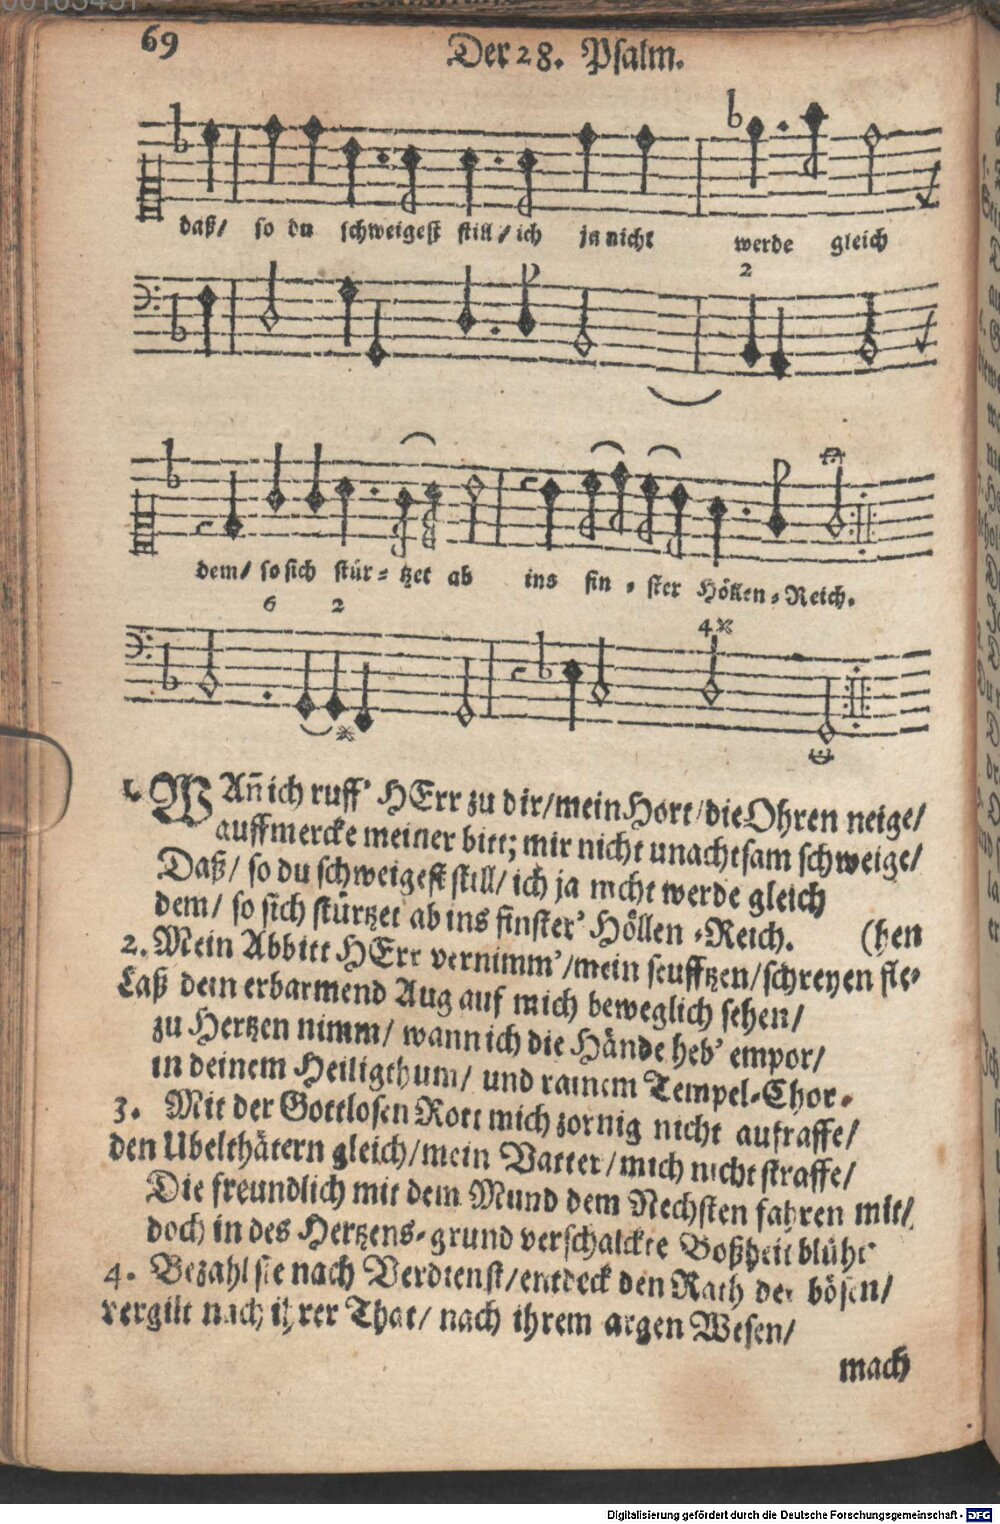 69
Der 28. Psalm.
daß/ so du schweigest still/ ich ja nicht werde gleich
2
dem/ so sich stür-tzet ab ins fin-ster Höllen-Reich.
6 2
4
1. WAñ ich ruff' HErr zu dir/mein Hort/die Ohren neige/
auffmercke meiner bitt; mir nicht unachtsam schweige/
Daß/ so du schweigest still/ ich ja nicht werde gleich
dem/ so sich stürtzet ab ins finster' Höllen-Reich. (hen
2. Mein Abbitt HErr vernimm'/mein seufftzen/schreyen fle-
Laß dein erbarmend Aug auf mich beweglich sehen/
zu Hertzen nimm/ wann ich die Hände heb' empor/
in deinem Heiligthum/ und rainem Tempel-Chor.
3. Mit der Gottlosen Rott mich zornig nicht aufraffe/
den Ubelthätern gleich/mein Vatter/mich nicht straffe/
Die freundlich mit dem Mund dem Nechsten fahren mit/
doch in des Hertzens-grund verschalckte Boßheit blüht
4. Bezahl sie nach Verdienst/entdeck den Rath der bösen/
vergilt nach ihrer That/ nach ihrem argen Wesen/
mach
Digitalisierung gefördert durch die Deutsche Forschungsgemeinschaft - DFG